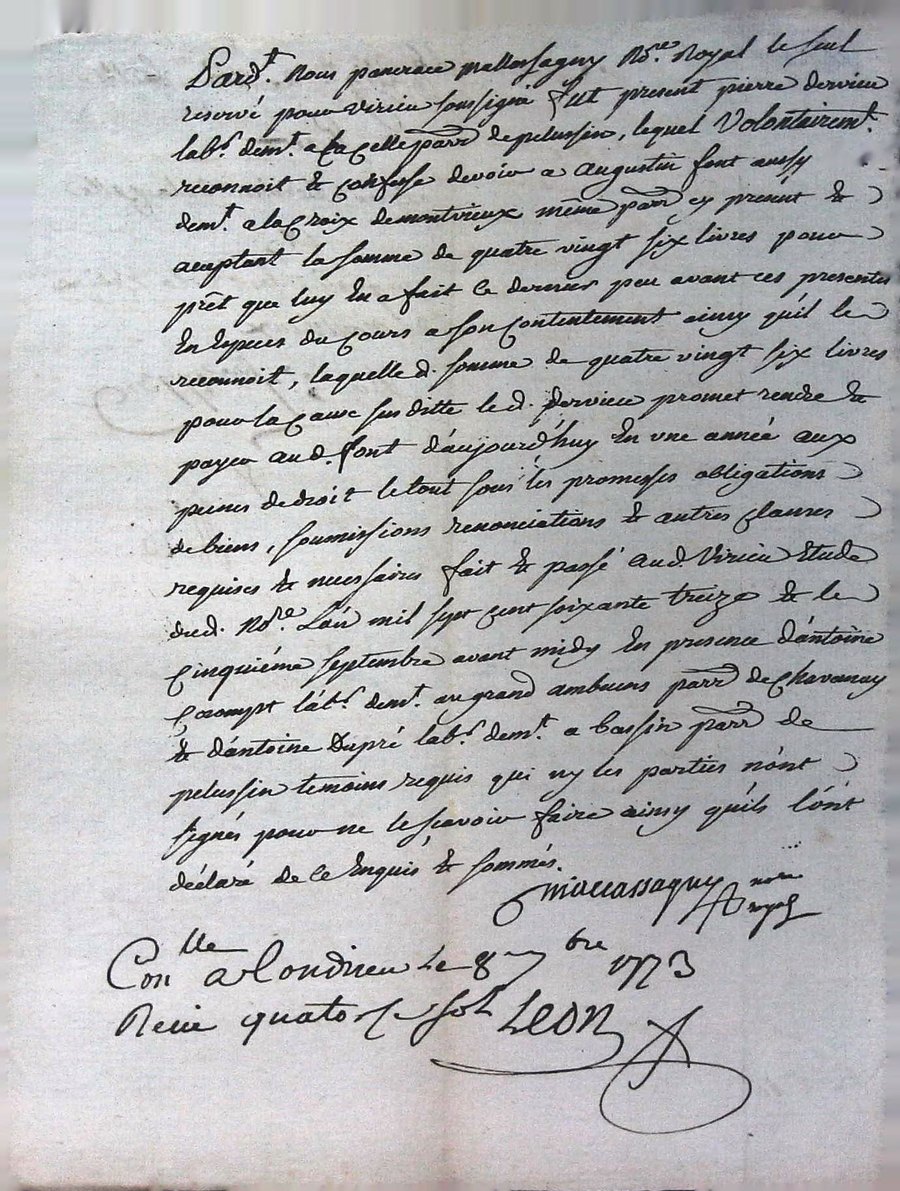 Pard.t Nous pancrace mallassagny No.re Royal le seul
reservé pour virieu soussigné fut present pierre dervieu
lab.r demt. a la celle parr de pelussin, lequel volontairemt.
reconnoit & confesse devoir a augustin font aussy
demt. a la Croix de montvieux même parr cy présent &
aceptant la somme de quatre vingt six livres pour
prêt que luy En a fait ce dernier peu avant ces presentes
En Especes du Cours a son Contentement ainsy quil le
reconnoit, laquelle d. somme de quatre vingt six livres
pour la Cause sus ditte le d. dervieu promet rendre &
payer aud. font d'aujourd'huy En une année aux
peines de droit le tout sous les promesses obligations
de biens, soumissions renonciations & autres clauses
requises & necessaires fait & passé aud. Virieu Etude
dud. No.re L'an mil sept cent soixante treize & le
Cinquiéme septembre avant midy En presence d'antoine
Crompt lab.r demt. au grand ambuens parr de Chavanay
& d'antoine Dupré lab.r demt. a bassin parr de
pelussin temoins requis qui ny les parties n'ont
signés pour ne le scavoir faire ainsy quils l'ont
déclaré de ce Enquis & sommés.
No.re
royal
Con.lle a Condrieu Le 8 bre 1773
Reçu quatorze sols LEON